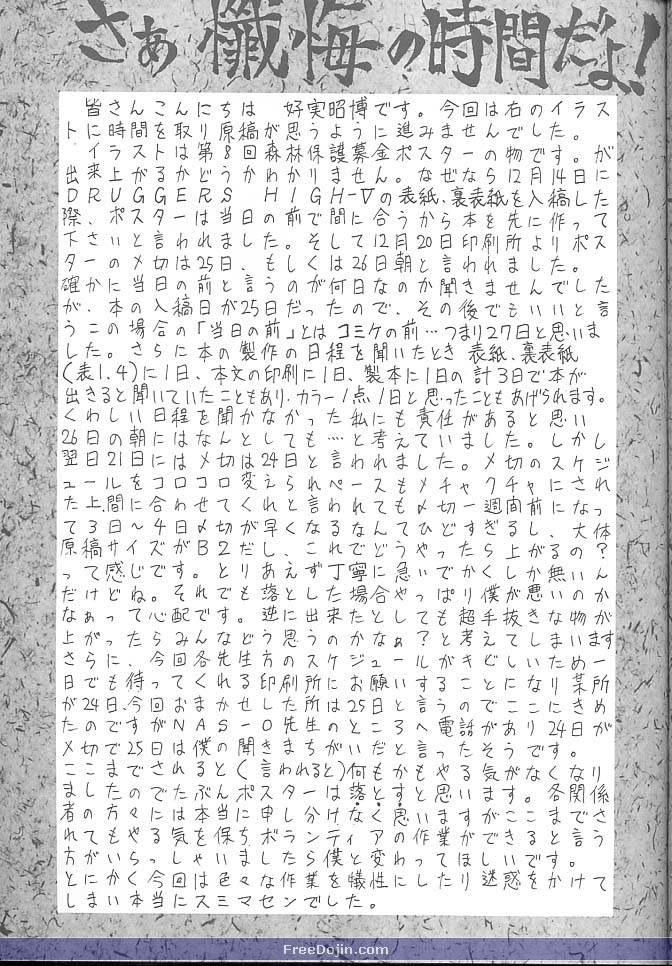 さあ懺悔の時間だよ!
皆さんこんにちは 好実昭博です。今回は右のイラス
トに時間を取り原稿が思うように進みませんでした。
イラストは第8回森林保護募金ポスターの物です。が
出来上がるかどうかわかりません。なぜなら12月14日に
DRUGGERS HIGH-Vの表紙、裏表紙を入稿した
際、ポスターは当日の前で間に合うから本を先に作って
下さいと言われました。そして12月20日印刷所よりポス
ターの〆切は25日、もしくは26日朝と言われました。
確かに当日の前と言うのが何日なのか聞きませんでした
が、本の入稿日が25日だったので、その後でもいいと言
うこの場合の「当日の前」とはコミケの前…つまり27日と思いま
した。さらに本の製作の日程を聞いたとき 表紙、裏表紙
(表1.4)に1日、本文の印刷に1日、製本に1日の計3日で本が
出きると聞いていたこともあり、カラー1点1日と思ったこともあげられます。
くわしい日程を聞かなかった私にも責任があると思い
26日の朝にはなんとしても…と考えていました。しかし
翌日21日には〆切は24日と言われました。〆切のスケジ
ュールをコロコロ変えられペースもメチャクチャにされ
た上、間に合わせてくれと言われても〆切一週間前になっ
て3日〜4日〆切が早くなるなんてひどすぎるし、大体
原稿サイズがB2だし、これでどうやったら上がるの?
って感じです。とりあえず丁寧に急いでかくしか無いん
だけどね。それでも落とした場合やっぱり僕が悪いのか
なぁって心配です。逆に出来たとしても超手抜きな物が
上がったらみんなどう思うのかなぁ?と考えてしまいます
さらに、今回各先生方のスケジュールがきどしいため一
日でも待ってくれる印刷所にお願いすることになり某所
が24日、今回おまかせした所は25日と言うのでここにきめ
たのですがNAS-O先生のところへ電話があり24日が
〆切で25日は僕の聞きまちがいだと言ったそうです。
ここまでされると(言われると)何もかもやる気がなくなり
ましたのでたぶんポスターは落とすと思います。各関係
者の方々には本当に申し分けなく思いますがここまでさ
れてもやる気を保ちボランティアの作業ができると言う
方がいらっしゃいましたら僕と変わってほしいです。
とにかく今回は色々な作業を犠性にしたり迷惑をかけて
しまい本当にスミマセンでした。
FreeDojin.com